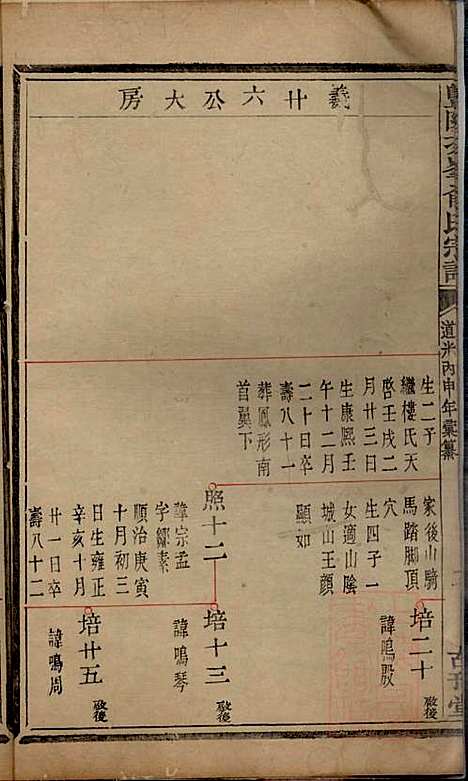 義廿六公大房
氏宗譜
道光丙申年彙纂
生二子
繼樓氏天
啓壬戌二
月廿三日
生康熙壬
午十二月
二十日卒
壽八十一
葬鳳形南
首翼下
家後山騎
馬踏脚頂
穴
生四子一
女適山陰
城山王顔
顯如
照十二
諱宗孟
字鄒素
順治庚寅
十月初三
日生雍正
辛亥十月
廿一日卒
壽八十二
培二十
啟後
諱鳴殷
培十三
啟後
諱鳴琴
培廿五
啟後
諱鳴周